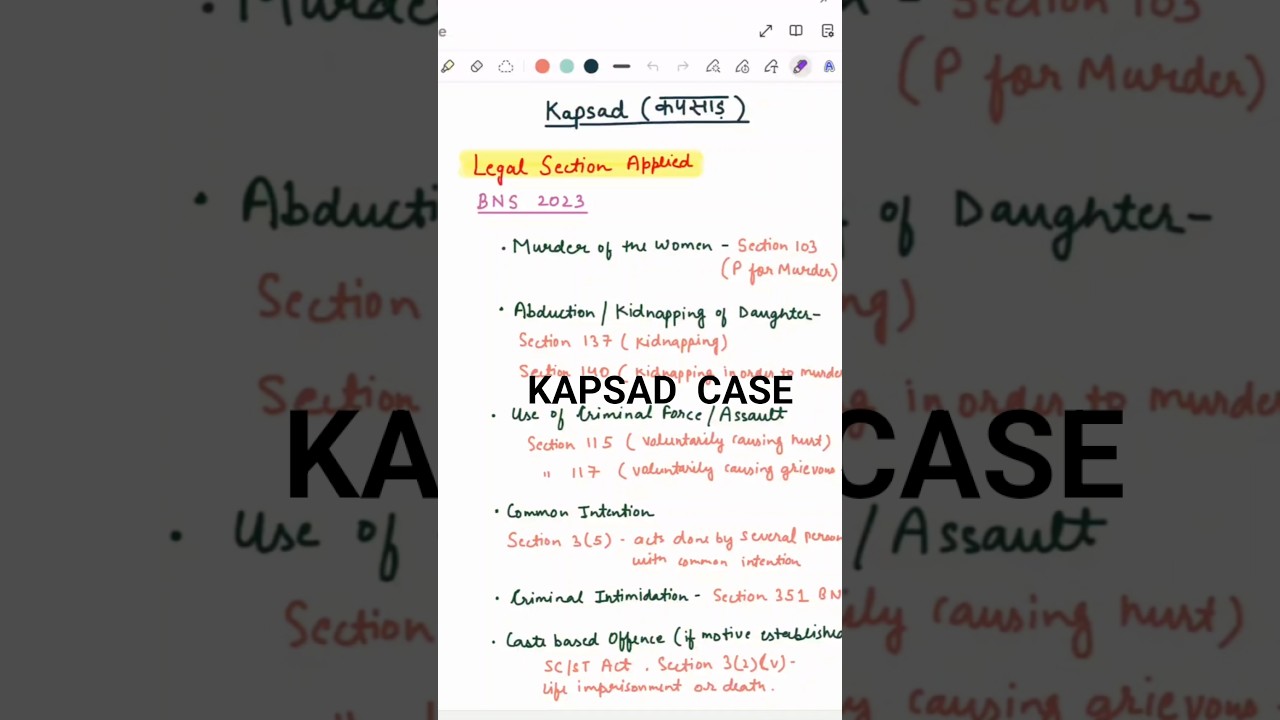 e
Kapsad (कपसाड़)
Legal Section Applied
BNS 2023
• Murder of the Women - Section 103
(P for Murder)
• Abduction / Kidnapping of Daughter-
Section 137 ( Kidnapping)
Section 140 ( Kidnapping in order to murder
KAPSAD CASE
• Use of Criminal Force / Assault
Section 115 ( voluntarily causing hurt)
" 117 ( voluntarily causing grievous
• Common Intention
Section 3(5) - acts done by several person
with common intention
• Criminal Intimidation - Section 351 BN
• Caste based Offence (if motive established
SC/ST Act . Section 3(2)(v) -
life imprisonment or death.